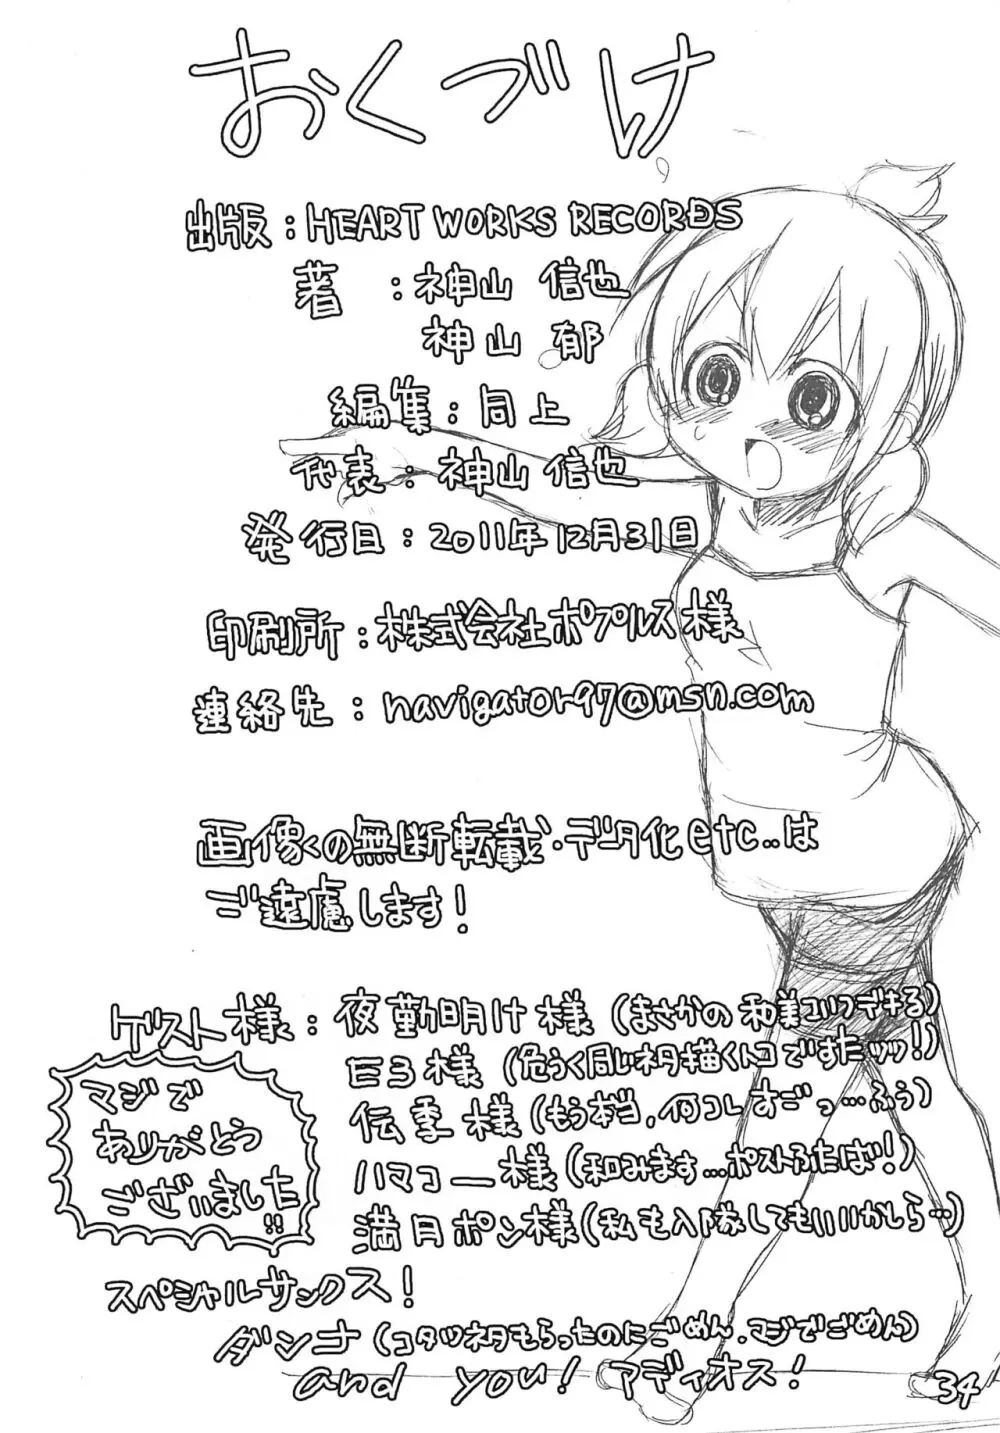 おくづけ
出版：HEART WORKS RECORDS
著：神山 信也
神山 郁
編集：同上
代表：神山 信也
発行日：2011年12月31日
印刷所：株式会社ポプルス様
連絡先：navigator97@msn.com
画像の無断転載・データ化etc..は
ご遠慮します！
ゲスト様：夜勤明け様（まさかの和美コリコデキる）
E3様（危うく同じネタ描くトコですたッッ！）
伝季様（もう本当、何コレすごっ…ふぅ）
ハマコー様（和みます…ポストふたば！）
満月ポン様（私も入隊してもいいかしら…）
マジで
ありがとう
ございました!!
スペシャルサンクス！
ダンナ（コタツネタもらったのにごめん、マジでごめん）
and you! アディオス！
34